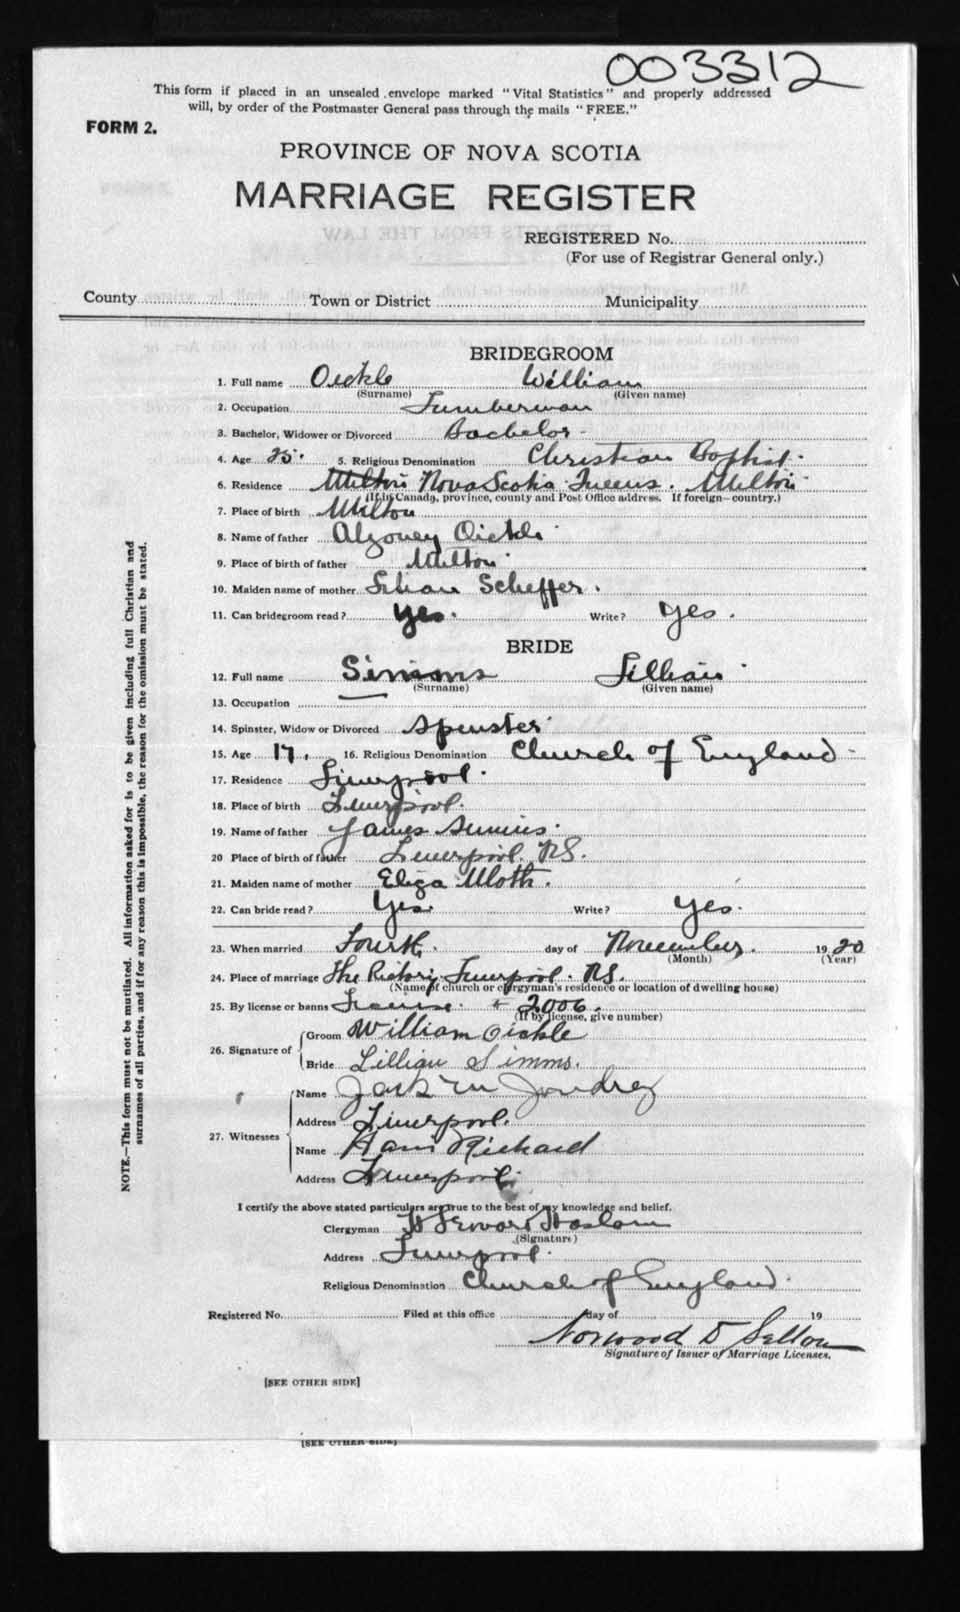 003312
This form if placed in an unsealed envelope marked "Vital Statistics" and properly addressed
will, by order of the Postmaster General pass through the mails "FREE."
FORM 2.
PROVINCE OF NOVA SCOTIA
MARRIAGE REGISTER
REGISTERED No.
(For use of Registrar General only.)
County Town or District Municipality
BRIDEGROOM
1. Full name Oickle William
(Surname) (Given name)
2. Occupation Lumberman
3. Bachelor, Widower or Divorced Bachelor
4. Age 25. 5. Religious Denomination Christian Baptist.
6. Residence Milton Nova Scotia Queens. Milton
(If in Canada, province, county and Post Office address. If foreign—country.)
7. Place of birth Milton
8. Name of father Oickle
9. Place of birth of father Milton
10. Maiden name of mother Lilian Scheffer.
11. Can bridegroom read? yes. Write? yes.
BRIDE
12. Full name Simms Lillian
(Surname) (Given name)
13. Occupation —
14. Spinster, Widow or Divorced Spinster
15. Age 17. 16. Religious Denomination Church of England
17. Residence Liverpool.
18. Place of birth Liverpool.
19. Name of father James Simms.
20 Place of birth of father Liverpool. NS.
21. Maiden name of mother Eliza
22. Can bride read? Yes. Write? Yes.
23. When married Fourth. day of November. 1920
(Month) (Year)
24. Place of marriage The Rectory. Liverpool. NS.
(Name of church or clergyman's residence or location of dwelling house)
25. By license or banns License. 2006.
(If by license, give number)
26. Signature of
Groom William Oickle
Bride Lillian Simms.
27. Witnesses
Name Jack M Joudrey
Address Liverpool.
Name Richard
Address Liverpool.
I certify the above stated particulars are true to the best of my knowledge and belief.
Clergyman Haslam
(Signature)
Address Liverpool.
Religious Denomination Church of England.
Registered No. Filed at this office day of 19
Norwood D Sellon
Signature of Issuer of Marriage Licenses.
[SEE OTHER SIDE]
[SEE OTHER SIDE]
NOTE.—This form must not be mutilated. All information asked for is to be given including full Christian and
surnames of all parties, and if for any reason this is impossible, the reason for the omission must be stated.